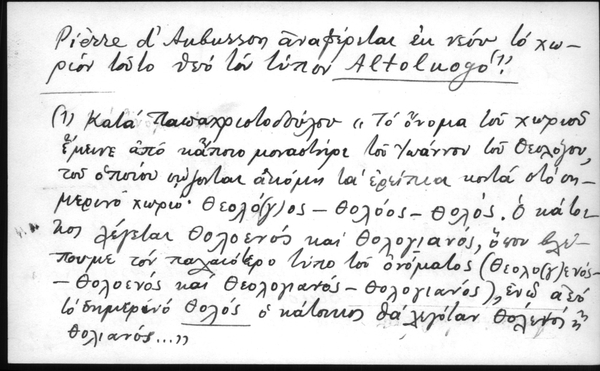 Pierre d' Aubusson ἀναφέρεται ἐκ νέου τὸ χω-
ριόν τοῦτο ὑπό τόν τύπον Altoluogo (1).
(1) Κατά Παπαχριστοδούλου « Τό ὄνομα τοῦ χωριοῦ
ἔμεινε ἀπό κάποιο μοναστήρι τοῦ Ἰωάννου τοῦ Θεολόγου,
τοῦ ὁποίου σώζονται ἀκόμη τά ἐρείπια κοντά στό ση-
μερινό χωριό. Θεολό(γ)ος - Θολόος - Θολός. Ὁ κάτοι-
κος λέγεται Θολοενός καί Θολογιανός, ὅπου βλέ-
πουμε τόν παλαιότερο τύπο τοῦ ὀνόματος (Θεολο(γ)ενός-
-Θολοενός καί Θεολογιανός - Θολογιανός), ἐνῶ ἀπό
τό σημερινό Θολός ὁ κάτοικος θά λεγόταν Θολενός ἤ
Θολιανός...»